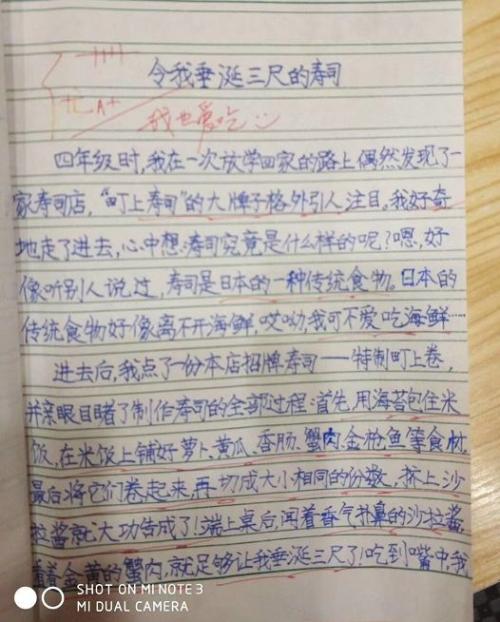 令我垂涎三尺的寿司
优A+
我也爱吃
四年级时,我在一次放学回家的路上偶然发现了一
家寿司店,“町上寿司”的大牌子格外引人注目。我好奇
地走了进去,心中想:寿司究竟是什么样的呢?嗯,好
像听别人说过,寿司是日本的一种传统食物。日本的
传统食物好像离不开海鲜,哎呦,我可不爱吃海鲜……
进去后,我点了一份本店招牌寿司——特制町上卷,
并亲眼目睹了制作寿司的全部过程:首先,用海苔包住米
饭,在米饭上铺好萝卜、黄瓜、香肠、蟹肉、金枪鱼等食材,
最后将它们卷起来,再切成大小相同的份数,挤上沙
拉酱就大功告成了!端上桌后,闻着香气扑鼻的沙拉酱,
看着金黄的蟹肉,就足够让我垂涎三尺了!吃到嘴中,我
SHOT ON MI NOTE 3
MI DUAL CAMERA